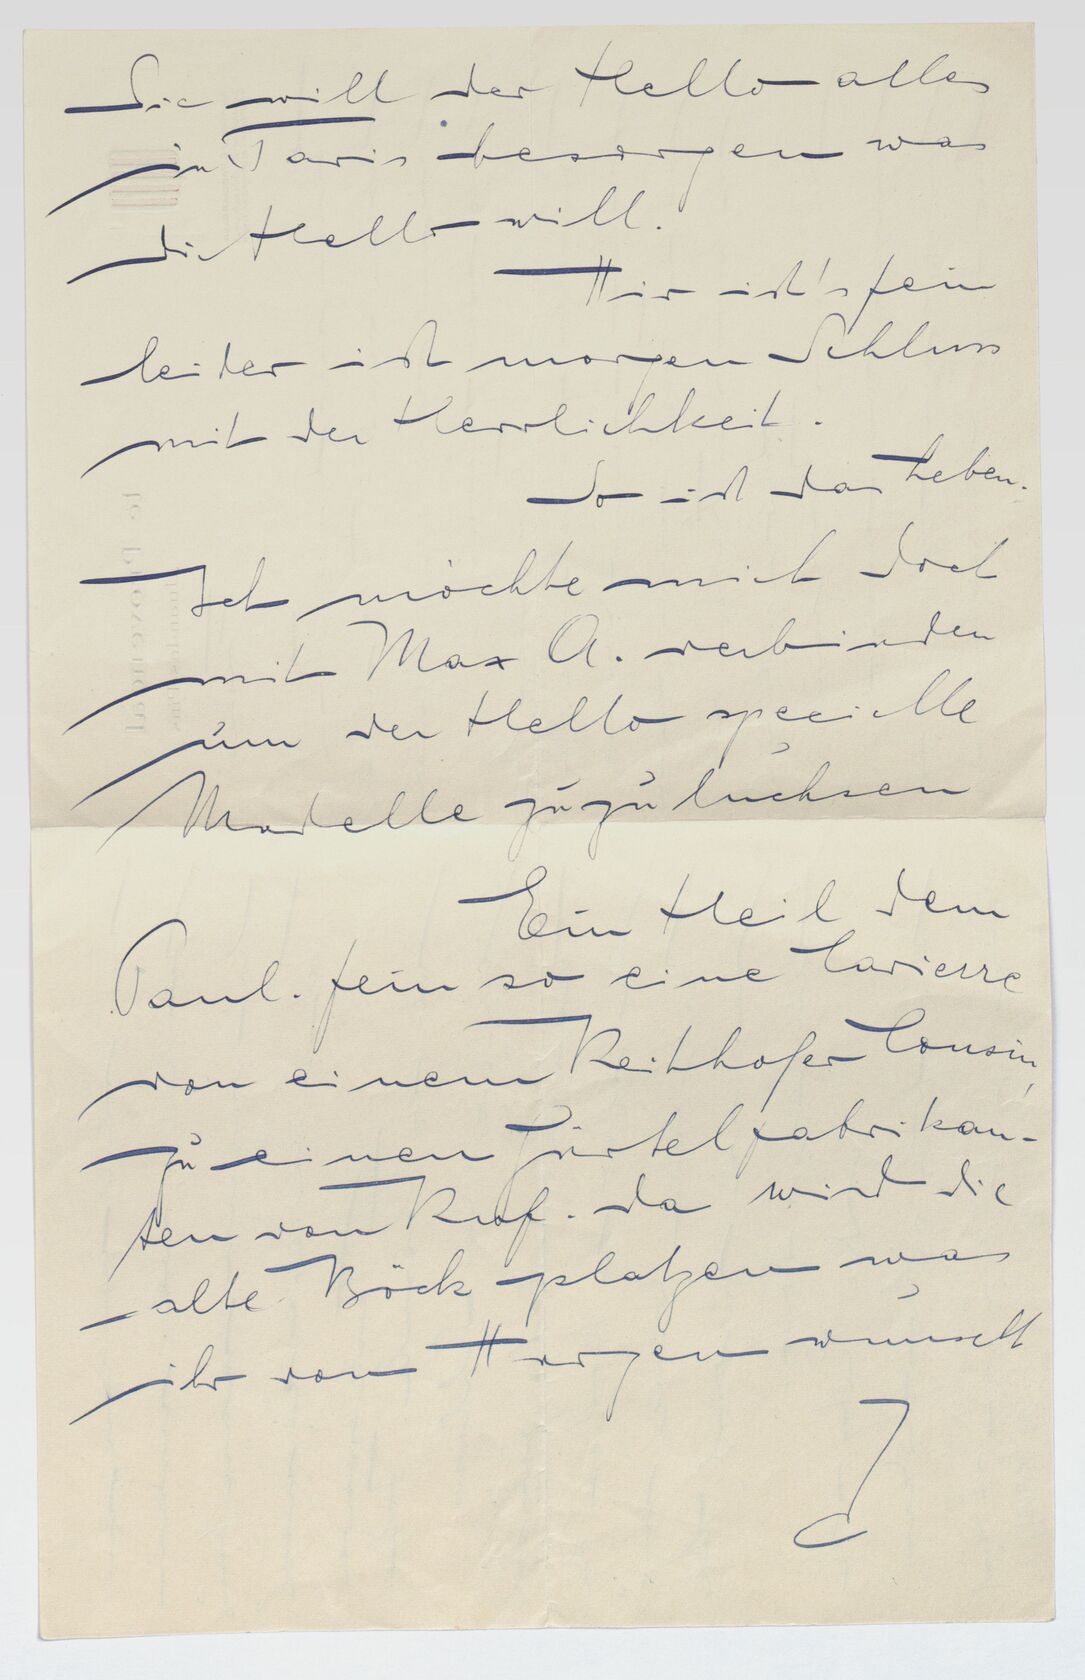 Sie will der Hello alles
in Paris besorgen was
die Hello will.
Hir ist's fein
leider ist morgen Schluss
mit der Herrlichkeit.
So ist das Leben.
Ich möchte mich dort
mit Max A. verbinden
um der Hello specielle
Modelle zuzuluchsen
Ein Heil dem
Paul. fein so eine Carierre
von einem Reithhofer Cousin,
zu einen Gürtelfabrikan-
ten von Ruf. da wird die
alte Böck platzen was
ihr von Herzen wünscht
J